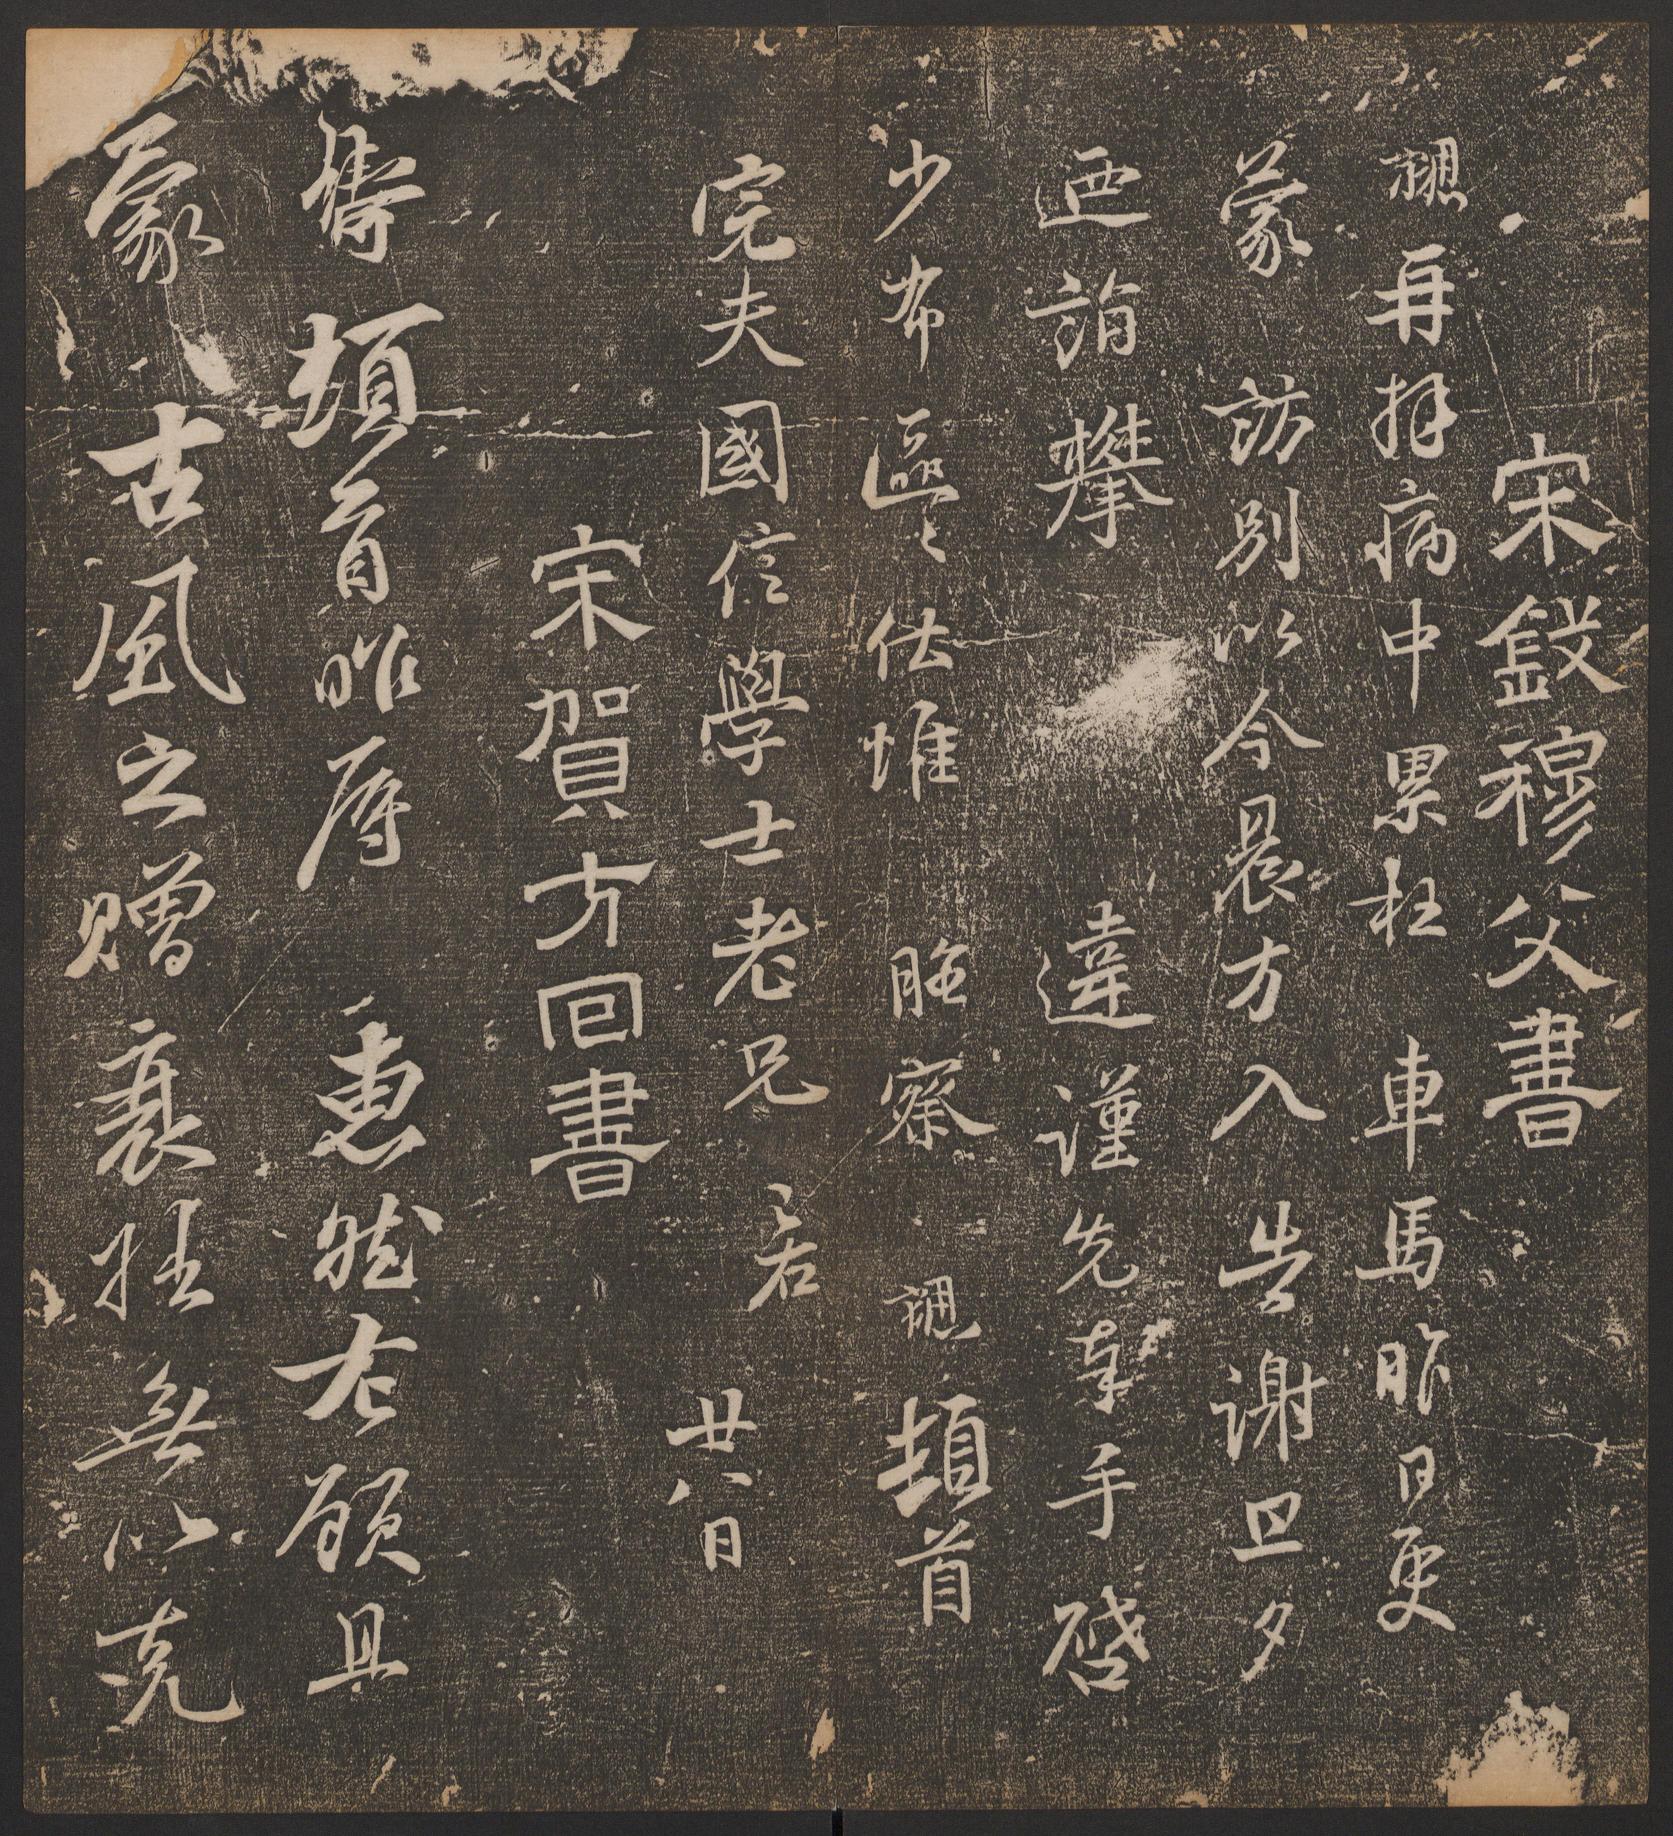 宋錢穆父書
勰再拜病中累枉車馬昨日更
蒙訪別以今晨方入告謝旦夕
迺詣攀違謹先奉手啓
少布區區伏惟照察勰頓首
完夫國信學士老兄廿八日
宋賀方回書
鑄頓首昨辱惠然右顧且
蒙古風之贈衰拙無以克